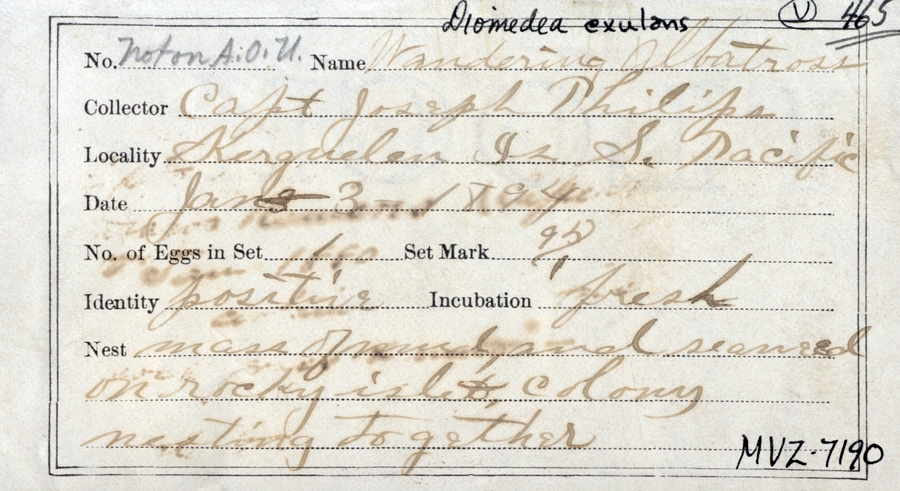 Diomedea exulans V 465
No. not on A.O.U. Name Wandering Albatross
Collector Capt Joseph Philips
Locality Kerguelen Is S. Pacific
Date Jan 3 1894
No. of Eggs in Set 1 Set Mark
Identity positive Incubation fresh
Nest mass of mud, and seaweed
on rocky islet, colony
nesting together
MVZ-7190